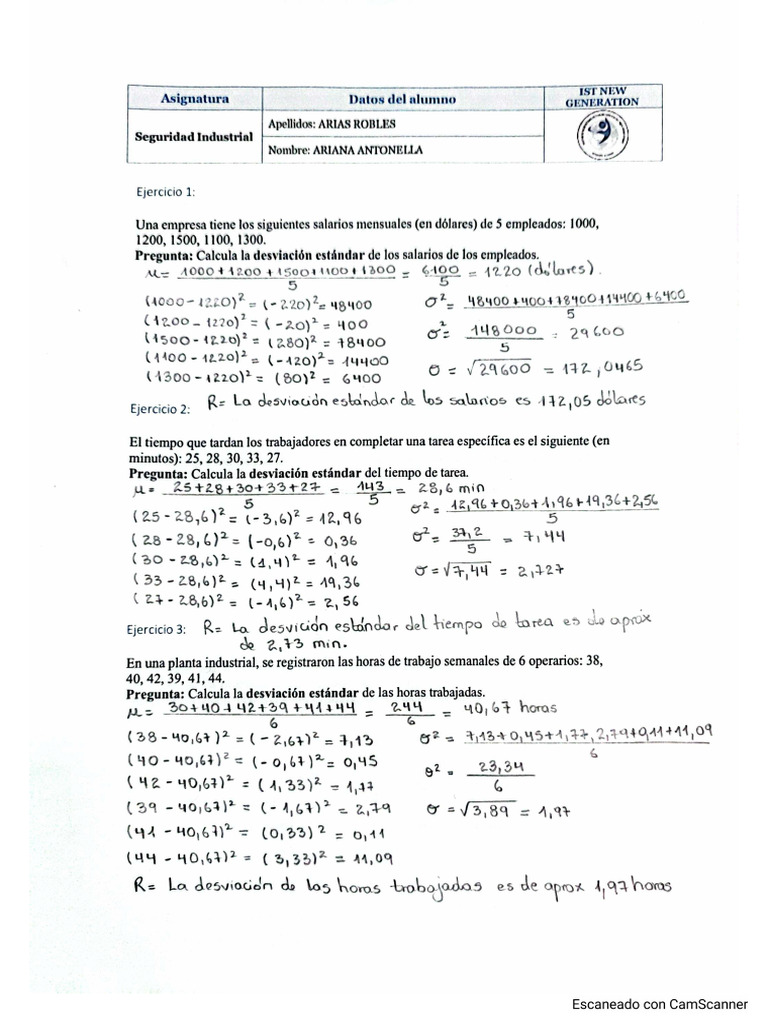 Asignatura Datos del alumno IST NEW GENERATION
Seguridad Industrial
Apellidos: ARIAS ROBLES
Nombre: ARIANA ANTONELLA
Ejercicio 1:
Una empresa tiene los siguientes salarios mensuales (en dólares) de 5 empleados: 1000,
1200, 1500, 1100, 1300.
Pregunta: Calcula la desviación estándar de los salarios de los empleados.
μ = 1000+1200+1500+1100+1300 / 5 = 6100 / 5 = 1220 (dólares).
(1000-1220)² = (-220)² = 48400
(1200-1220)² = (-20)² = 400
(1500-1220)² = (280)² = 78400
(1100-1220)² = (-120)² = 14400
(1300-1220)² = (80)² = 6400
σ² = 48400+400+78400+14400+6400 / 5
σ² = 148000 / 5 = 29600
σ = √29600 = 172,0465
R= La desviación estándar de los salarios es 172,05 dólares
Ejercicio 2:
El tiempo que tardan los trabajadores en completar una tarea específica es el siguiente (en
minutos): 25, 28, 30, 33, 27.
Pregunta: Calcula la desviación estándar del tiempo de tarea.
μ = 25+28+30+33+27 / 5 = 143 / 5 = 28,6 min
(25-28,6)² = (-3,6)² = 12,96
(28-28,6)² = (-0,6)² = 0,36
(30-28,6)² = (1,4)² = 1,96
(33-28,6)² = (4,4)² = 19,36
(27-28,6)² = (-1,6)² = 2,56
σ² = 12,96+0,36+1,96+19,36+2,56 / 5
σ² = 37,2 / 5 = 7,44
σ = √7,44 = 2,727
Ejercicio 3:
R= La desvición estándar del tiempo de tarea es de aprox
de 2,73 min.
En una planta industrial, se registraron las horas de trabajo semanales de 6 operarios: 38,
40, 42, 39, 41, 44.
Pregunta: Calcula la desviación estándar de las horas trabajadas.
μ = 30+40+42+39+41+44 / 6 = 244 / 6 = 40,67 horas
(38-40,67)² = (-2,67)² = 7,13
(40-40,67)² = (-0,67)² = 0,45
(42-40,67)² = (1,33)² = 1,77
(39-40,67)² = (-1,67)² = 2,79
(41-40,67)² = (0,33)² = 0,11
(44-40,67)² = (3,33)² = 11,09
σ² = 7,13+0,45+1,77,2,79+0,11+11,09 / 6
σ² = 23,34 / 6
σ = √3,89 = 1,97
R= La desviación de las horas trabajadas es de aprox 1,97 horas
Escaneado con CamScanner